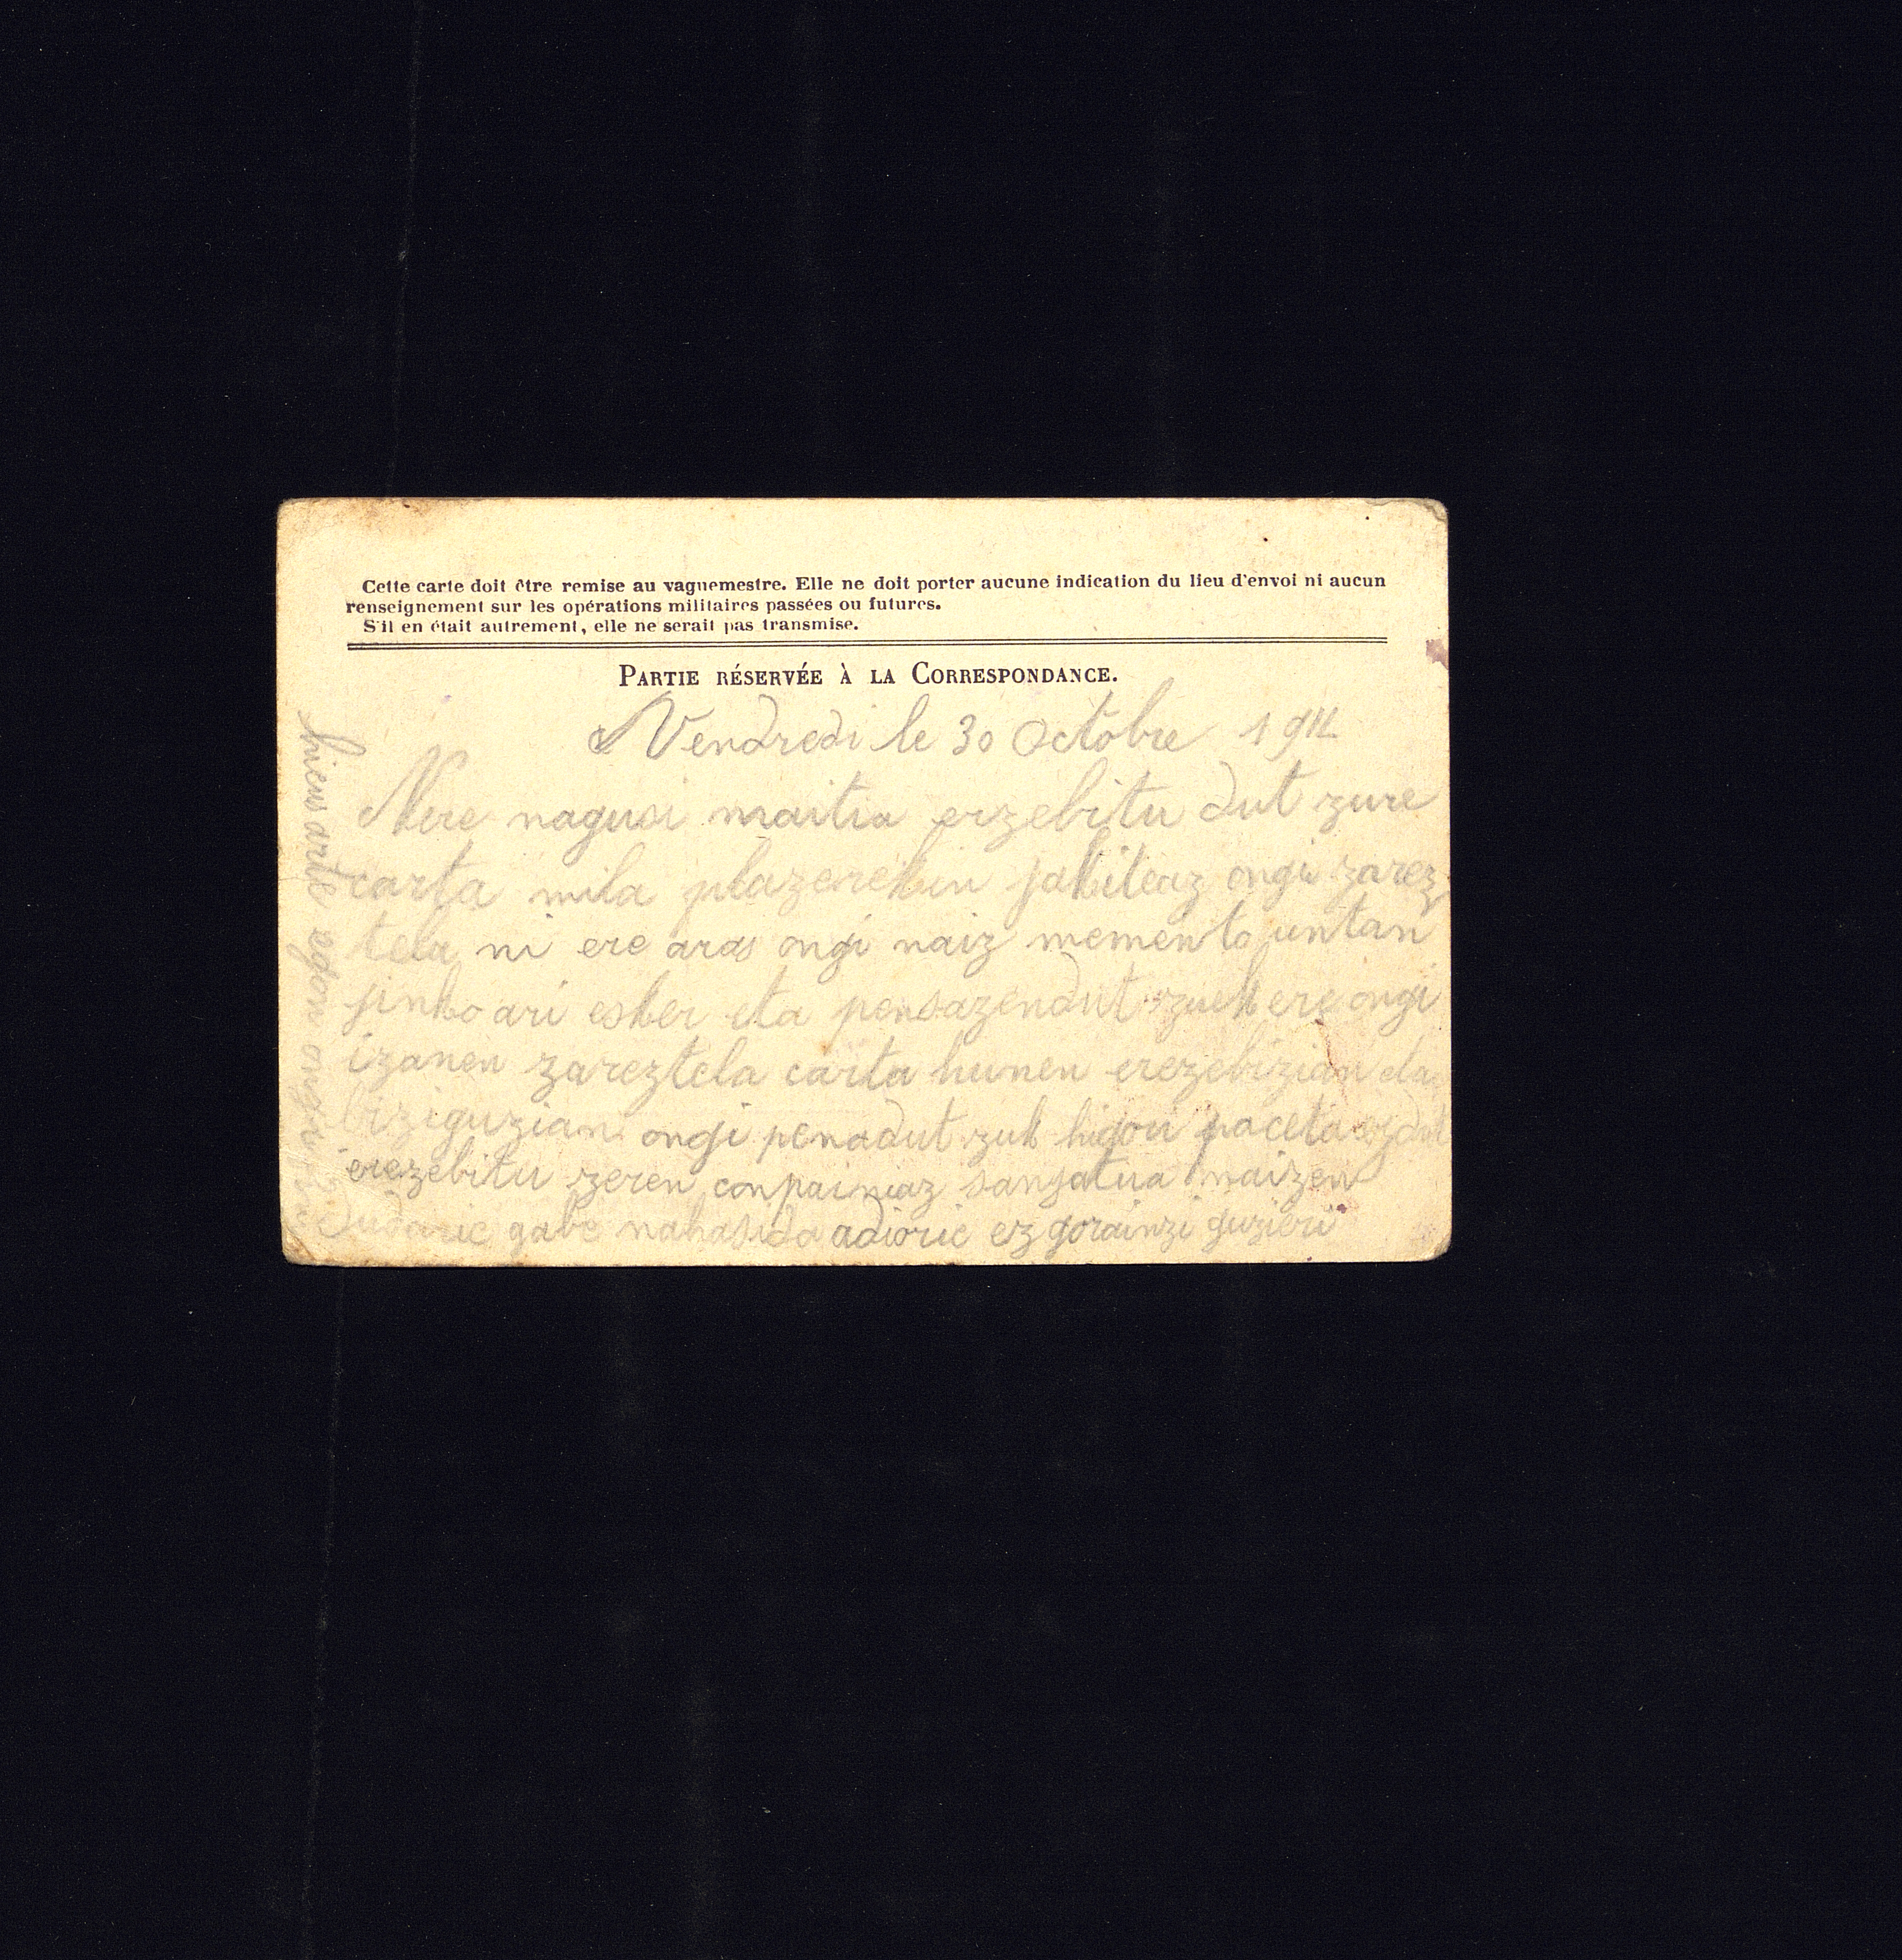 Cette carte doit être remise au vaguemestre. Elle ne doit porter aucune indication du lieu d'envoi ni aucun
renseignement sur les opérations militaires passées ou futures.
S'il en était autrement, elle ne serait pas transmise.
PARTIE RÉSERVÉE À LA CORRESPONDANCE.
Vendredi le 30 Octobre 1914
Nere nagusi maitia erzebitu dut zure
carta mila plazerekin jakiteaz ongi zarez
tela ni ere aras ongi naiz memento untan
jinkoari esker eta pensazendut zuek ere ongi
izanen zareztela carta hunen erezebizian eta
biziguzian ongi penadut zuk higori paceta ezdut
erezebitu zeren conpainiaz sanjatua naizen
Dudaric gabe nahasida adioric ez gorainzi guzieri
hieus arte egon ongi